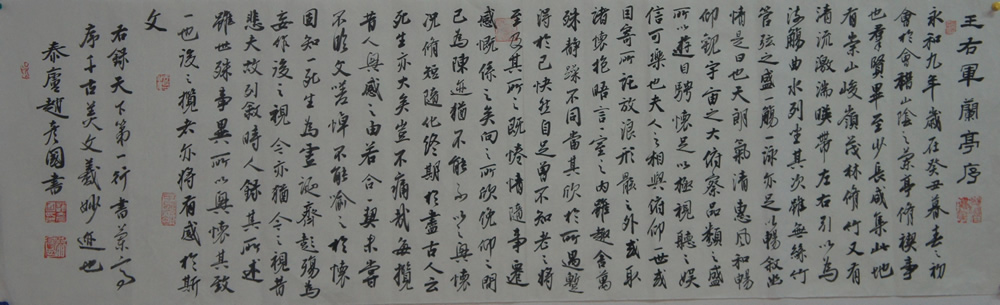 王右軍蘭亭序
永和九年歲在癸丑暮春之初
會於會稽山陰之蘭亭脩禊事
也羣賢畢至少長咸集此地
有崇山峻嶺茂林脩竹又有
清流激湍暎帶左右引以為
流觴曲水列坐其次雖無絲竹
管弦之盛一觴一詠亦足以暢叙幽
情是日也天朗氣清惠風和暢
仰觀宇宙之大俯察品類之盛
所以遊目騁懷足以極視聽之娛
信可樂也夫人之相與俯仰一世或
因寄所託放浪形骸之外或取
諸懷抱晤言一室之內雖趣舍萬
殊靜躁不同當其欣於所遇暫
得於己快然自足曾不知老之將
至及其所之既惓情隨事遷
感慨係之矣向之所欣俛仰之間
已為陳迹猶不能不以之興懷
況脩短隨化終期於盡古人云
死生亦大矣豈不痛哉每攬
昔人興感之由若合一契未嘗
不臨文嗟悼不能喻之於懷
固知一死生為虛誕齊彭殤為
妄作後之視今亦猶今之視昔
悲夫故列叙時人錄其所述
雖世殊事異所以興懷其致
一也後之攬者亦將有感於斯
文
右錄天下第一行書蘭亭
序千古美文羲妙迹也
泰廬趙彥國書